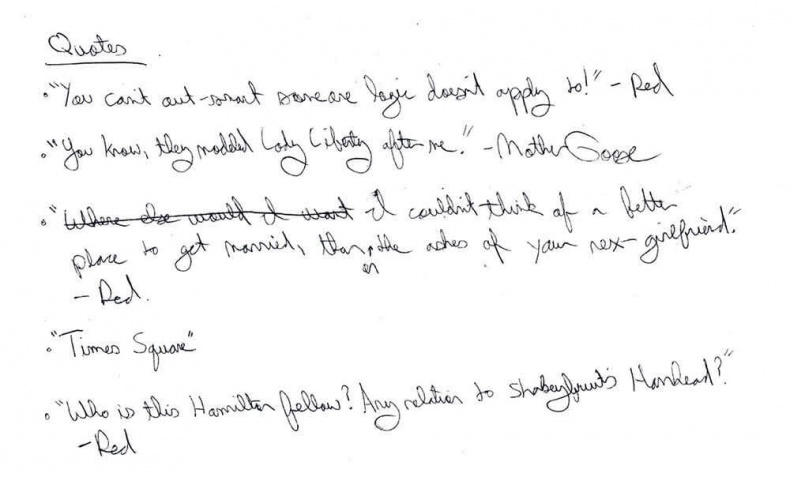 Quotes
• "You can't out-smart someone logic doesn't apply to!" - Red
• "You know, they modded Lady Liberty after me." - Mother Goose
• "Where else would I want I couldn't think of a better
place to get married, than on the ashes of your nex-girlfriend."
- Red.
• "Times Square"
• "Who is this Hamilton fellow? Any relation to Hamhead?"
- Red